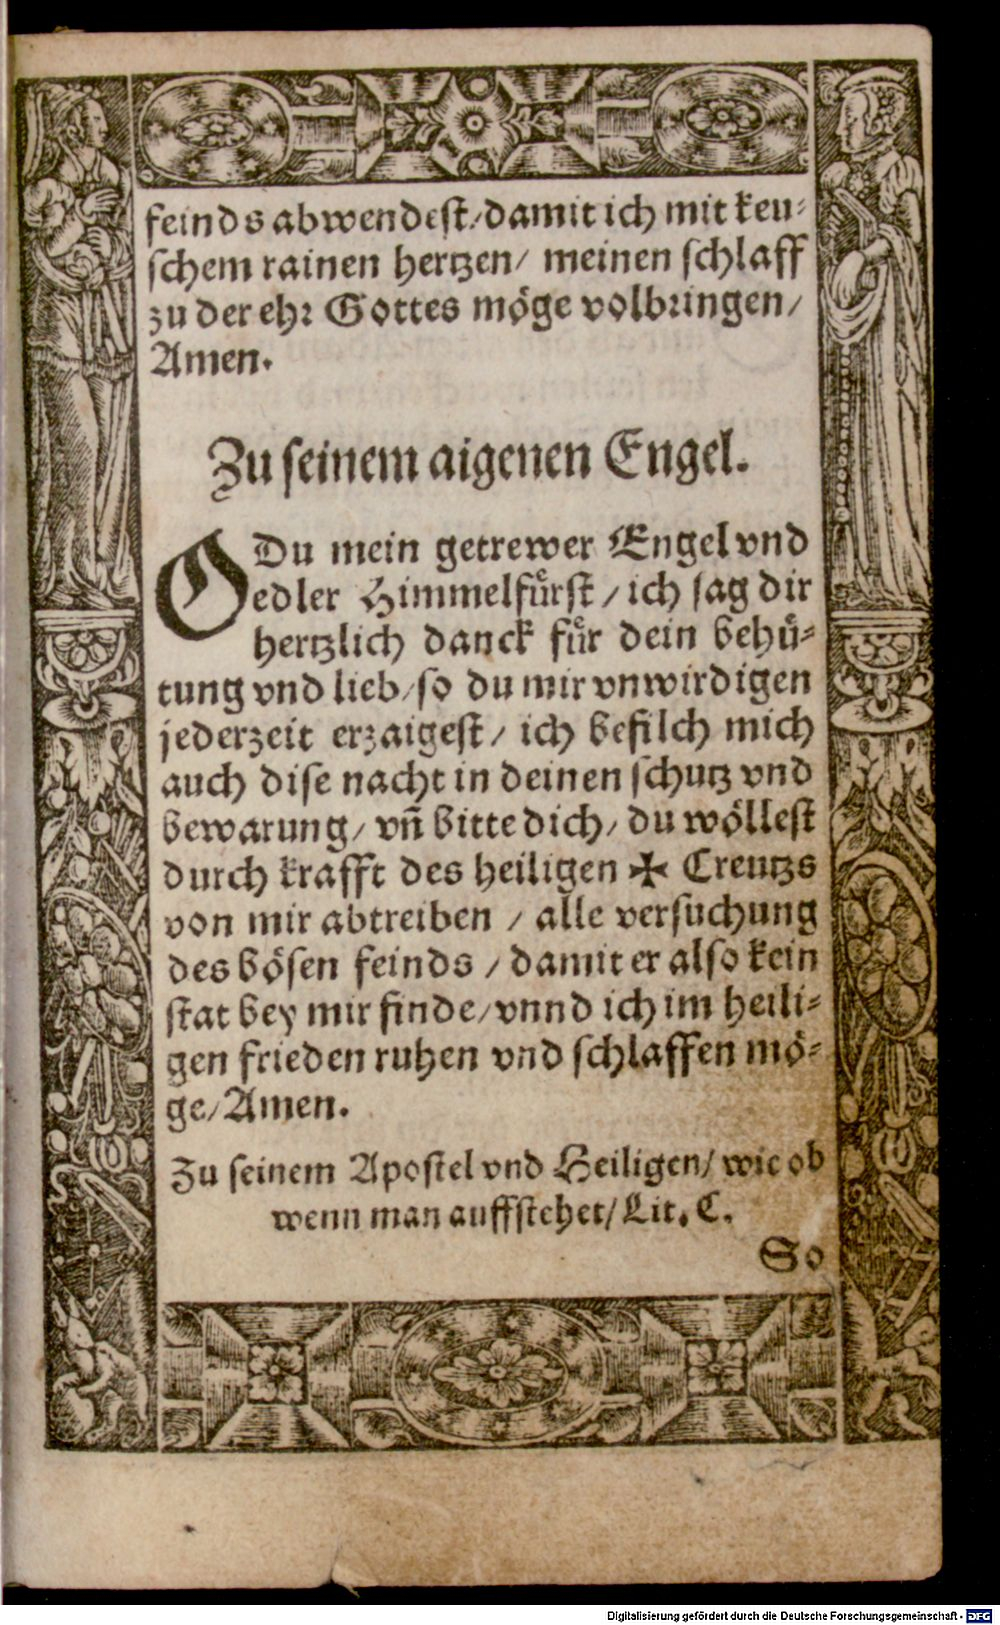 feinds abwendest/ damit ich mit keu⸗
schem rainen hertzen/ meinen schlaff
zu der ehr Gottes möge volbringen/
Amen.
Zu seinem aigenen Engel.
O Du mein getrewer Engel vnd
edler Himmelfuͤrst/ ich sag dir
hertzlich danck fuͤr dein behuͤ⸗
tung vnd lieb/ so du mir vnwirdigen
jederzeit erzaigest/ ich befilch mich
auch dise nacht in deinen schutz vnd
bewarung/ vñ bitte dich/ du wöllest
durch krafft des heiligen ✠ Creutzs
von mir abtreiben / alle versuchung
des bösen feinds / damit er also kein
stat bey mir finde/ vnnd ich im heili⸗
gen frieden ruhen vnd schlaffen mö⸗
ge/ Amen.
Zu seinem Apostel vnd Heiligen/ wie ob
wenn man auffstehet/ Lit. C.
So
Digitalisierung gefördert durch die Deutsche Forschungsgemeinschaft - DFG